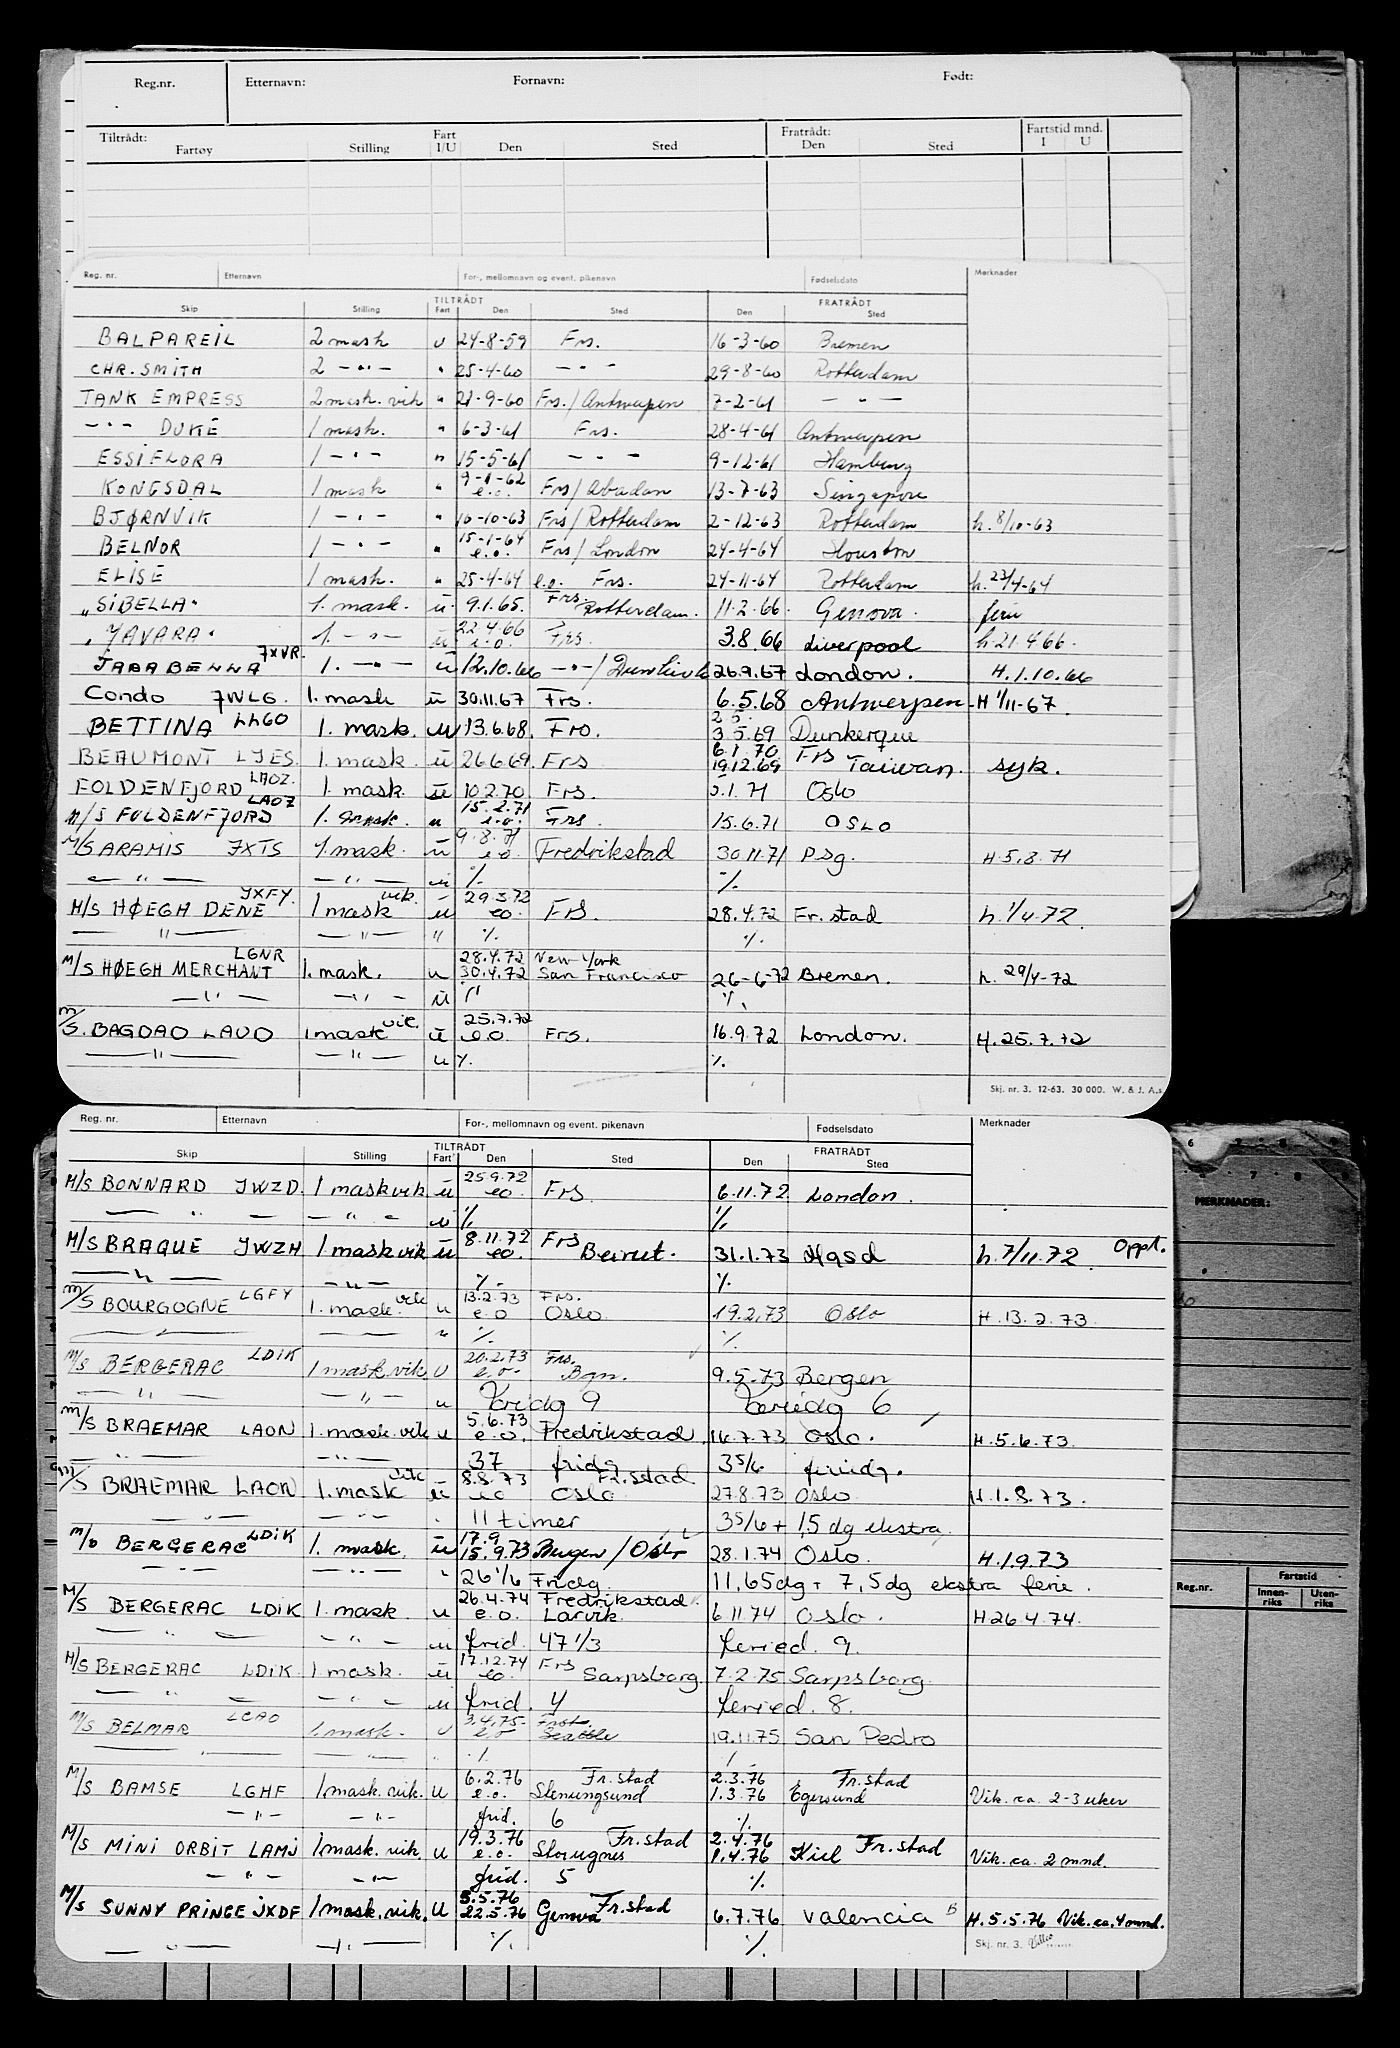 Reg.nr. Etternavn: Fornavn: Født:
Tiltrådt: Fart Fratrådt: Fartstid mnd.
Fartøy Stilling I/U Den Sted Den Sted I U
Reg. nr. Etternavn For-, mellomnavn og event. pikenavn Fødselsdato Merknader
TILTRÅDT FRATRÅDT
Skip Stilling Fart Den Sted Den Sted
BALPAREIL 2 mask u 24-8-59 Frs. 16-3-60 Bremen
CHR. SMITH 2 -"- " 25-4-60 -"- 29-8-60 Rotterdam
TANK EMPRESS 2 mask. vik " 21-9-60 Frs./Antwerpen 7-2-61 -"-
-"- DUKE 1 mask. " 6-3-61 Frs. 28-4-61 Antwerpen
ESSI FLORA 1 -"- " 15-5-61 -"- 9-12-61 Hamburg
KONGSDAL 1 mask " 9-1-62 e.o. Frs/Abadan 13-7-63 Singapore
BJØRNVIK 1 -"- " 10-10-63 Frs/Rotterdam 2-12-63 Rotterdam h. 8/10-63
BELNOR 1 -"- " 15-1-64 e.o. Frs/London 24-4-64 Houston
ELISE 1 mask. " 25-4-64 e.o. Frs. 24-11-64 Rotterdam h. 23/4-64
"SIBELLA" 1. mask. ü 9.1.65. Frs. Rotterdam. 11.2.66. Genova. ferie
"JAVARA" 1. -"- ü 22.4.66 e.o. Frs. 3.8.66 Liverpool h. 21.4.66.
JABABENNA JXVR. 1. -"- ü 12.10.66 -"-/ 26.9.67 London. H. 1.10.66
Condo JWLG. 1. mask ü 30.11.67 Frs. 6.5.68 Antwerpen H 1/11-67.
BETTINA LLGO 1. mask. u 13.6.68. Frs. 2 5. 3 5 69 Dunkerque
BEAUMONT LJES. 1. mask. ü 26.6.69. Frs 6.1.70 19.12.69 Frs Taiwan. syk.
FOLDENFJORD LAOZ. 1. mask. ü 10.2.70 Frs. 5.1.71 Oslo
M/S FOLDENFJORD LAOZ 1. mask. u 15.2.71 e.o. Frs 15.6.71 OSLO
M/S ARAMIS JXTS 1. mask. ü 9.8.71 e.o. Fredrikstad 30.11.71 P.Sg. H. 5.8.71
-"- -"- ü % %
M/S HØEGH DENE JXFY. 1 mask vik. ü 29.3.72 eo. Frs. 28.4.72 Fr. stad h. 1/4-72.
-"- -"- " % %
M/S HØEGH MERCHANT LGNR 1. mask. u 28.4.72 30.4.72 New York San Francisco 26-6-72 Bremen. h. 29/4-72
-"- -"- ü % %
M/S. BAGDAD LAUO 1 mask vik. ü 25.7.72 e.o. Frs. 16.9.72 London. H. 25.7.72
-"- -"- u % %
Skj. nr. 3. 12-63. 30 000. W. & J. A.s
Reg. nr. Etternavn For-, mellomnavn og event. pikenavn Fødselsdato Merknader
TILTRÅDT FRATRÅDT
Skip Stilling Fart Den Sted Den Sted
M/S BONNARD JWZD. 1 mask vik ü 25.9.72 eo Frs. 6.11.72 London.
-"- -"- ü % %
M/S BRAQUE JWZH 1 mask vik ü 8.11.72 eo. Frs Beirut. 31.1.73 Hgsd h. 7/11.72. Oppt.
-"- -"- % %
M/S BOURGOGNE LGFY 1. mask. vik u 13.2.73 e.o Frs. Oslo. 19.2.73 Oslo H. 13.2.73.
-"- -"- " % %
M/S BERGERAC LDIK 1 mask. vik. u 20.2.73 e.o. Frs. Bgn. 9.5.73 Bergen
-"- -"- u Feridg 9 Feriedg 6
M/S BRAEMAR LAON 1. mask. vik u 5.6.73 e.o. Fredrikstad 16.7.73 Oslo. H. 5.6.73.
-"- -"- 37 fridg 35/6 feriedg.
M/S BRAEMAR LAON 1. mask vik ü 8.8.73 eo Fr. stad Oslo 27.8.73 Oslo H. 1.8.73.
-"- -"- 11 timer 35/6 + 1,5 dg ekstra
M/S BERGERAC LDIK 1. mask. ü 17.9 15.9.73 Bergen/Oslo 28.1.74 Oslo. H. 1.9.73
-"- -"- " 26 1/6 Fridg. 11,65dg + 7,5dg ekstra ferie.
M/S BERGERAC LDIK 1. mask. u 26.4.74 e.o. Fredrikstad Larvik. 6.11.74 Oslo. H 26.4.74.
-"- -"- ü frid. 47 1/3 feried. 9.
M/S BERGERAC LDIK. 1 mask. ü 17.12.74 eo. Frs Sarpsborg. 7.2.75 Sarpsborg
-"- -"- ü frid. 4 feried. 8.
M/S BELMAR LCAO 1. mask. u 3.4.75- e.o Frst. Seattle 19.11.75 San Pedro
-"- -"- % %
M/S BAMSE LGHF 1. mask. vik. u 6.2.76 e.o. Fr. stad Stenungsund 2.3.76 1.3.76 Fr. stad Egersund Vik. ca. 2-3 uker
-"- -"- frid. 6 %
M/S MINI ORBIT LAMJ 1 mask. vik. u 19.3.76 e.o. Fr. stad 2.4.76 1.4.76 Kiel Fr. stad Vik. ca. 2 mnd.
-"- -"- frid. 5 %
M/S SUNNY PRINCE JXDF 1 mask. vik. u 5.5.76 22.5.76 Fr. stad Genova 6.7.76 Valencia H. 5.5.76 Vik. ca. 4 mnd.
-"- -"- % %
Skj. nr. 3.
6 7 8 9
MERKNADER:
Fartstid
Reg.nr. Innen-riks Uten-riks